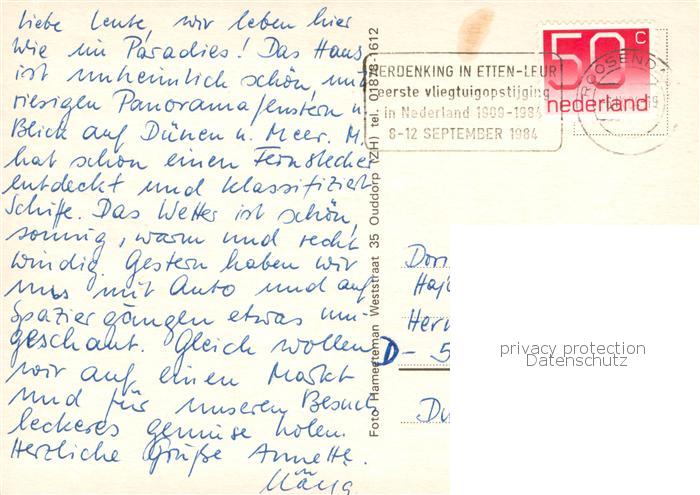 Liebe Leute, wir leben hier
wie im Paradies! Das Haus
ist unheimlich schön, mit
riesigen Panoramafenstern u.
Blick auf Dünen u. Meer. M.
hat schon einen Fernstecher
entdeckt und klassifiziert
Schiffe. Das Wetter ist schön,
sonnig, warm und recht
windig. Gestern haben wir
uns mit Auto und auf
Spaziergängen etwas um-
geschaut. Gleich wollen
wir auf einen Markt
und für unseren Besuch
leckeres gemüse holen.
Herzliche Grüße Annette.
Foto Hameeteman Weststraat 35 Ouddorp (ZH) tel. 01878-1612
HERDENKING IN ETTEN-LEUR
eerste vliegtuigopstijging
in Nederland 1909-1984
8-12 SEPTEMBER 1984
50 c
nederland
ROOSENDA
Dori
Hajo
Herr
D - 5
Du
privacy protection
Datenschutz